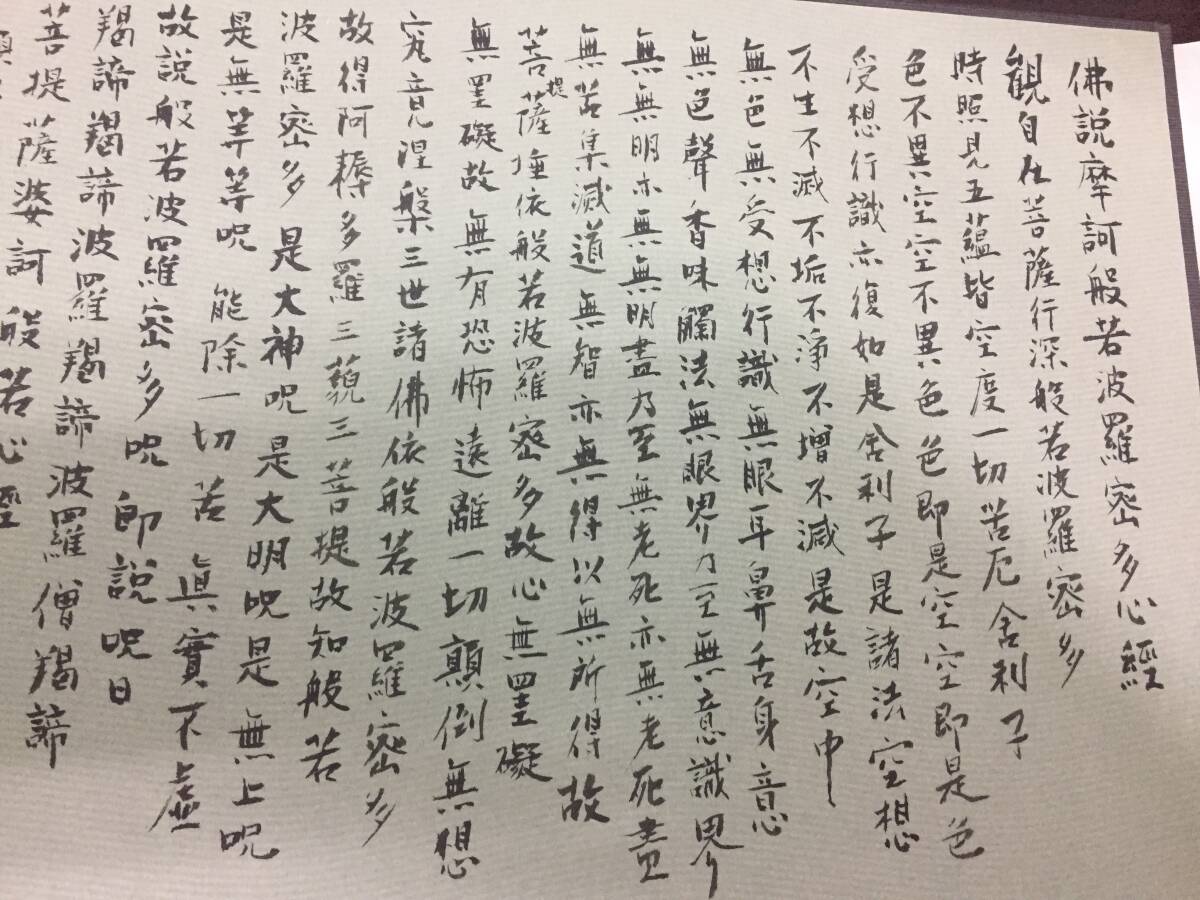 佛説摩訶般若波羅密多心經
観自在菩薩行深般若波羅密多
時照見五蘊皆空度一切苦厄舍利子
色不異空空不異色色即是空空即是色
受想行識亦復如是舍利子是諸法空想
不生不滅不垢不淨不增不減是故空中
無色無受想行識無眼耳鼻舌身意
無色聲香味觸法無眼界乃至無意識界
無無明亦無無明盡乃至無老死亦無老死盡
無苦集滅道無智亦無得以無所得故
菩提薩埵依般若波羅密多故心無罣礙
無罣礙故無有恐怖遠離一切顛倒無想
究竟涅槃三世諸佛依般若波羅密多
故得阿耨多羅三藐三菩提故知般若
波羅密多是大神呪是大明呪是無上呪
是無等等呪能除一切苦真實不虛
故説般若波羅密多呪即說呪曰
羯諦羯諦波羅羯諦波羅僧羯諦
菩提薩婆訶般若心經